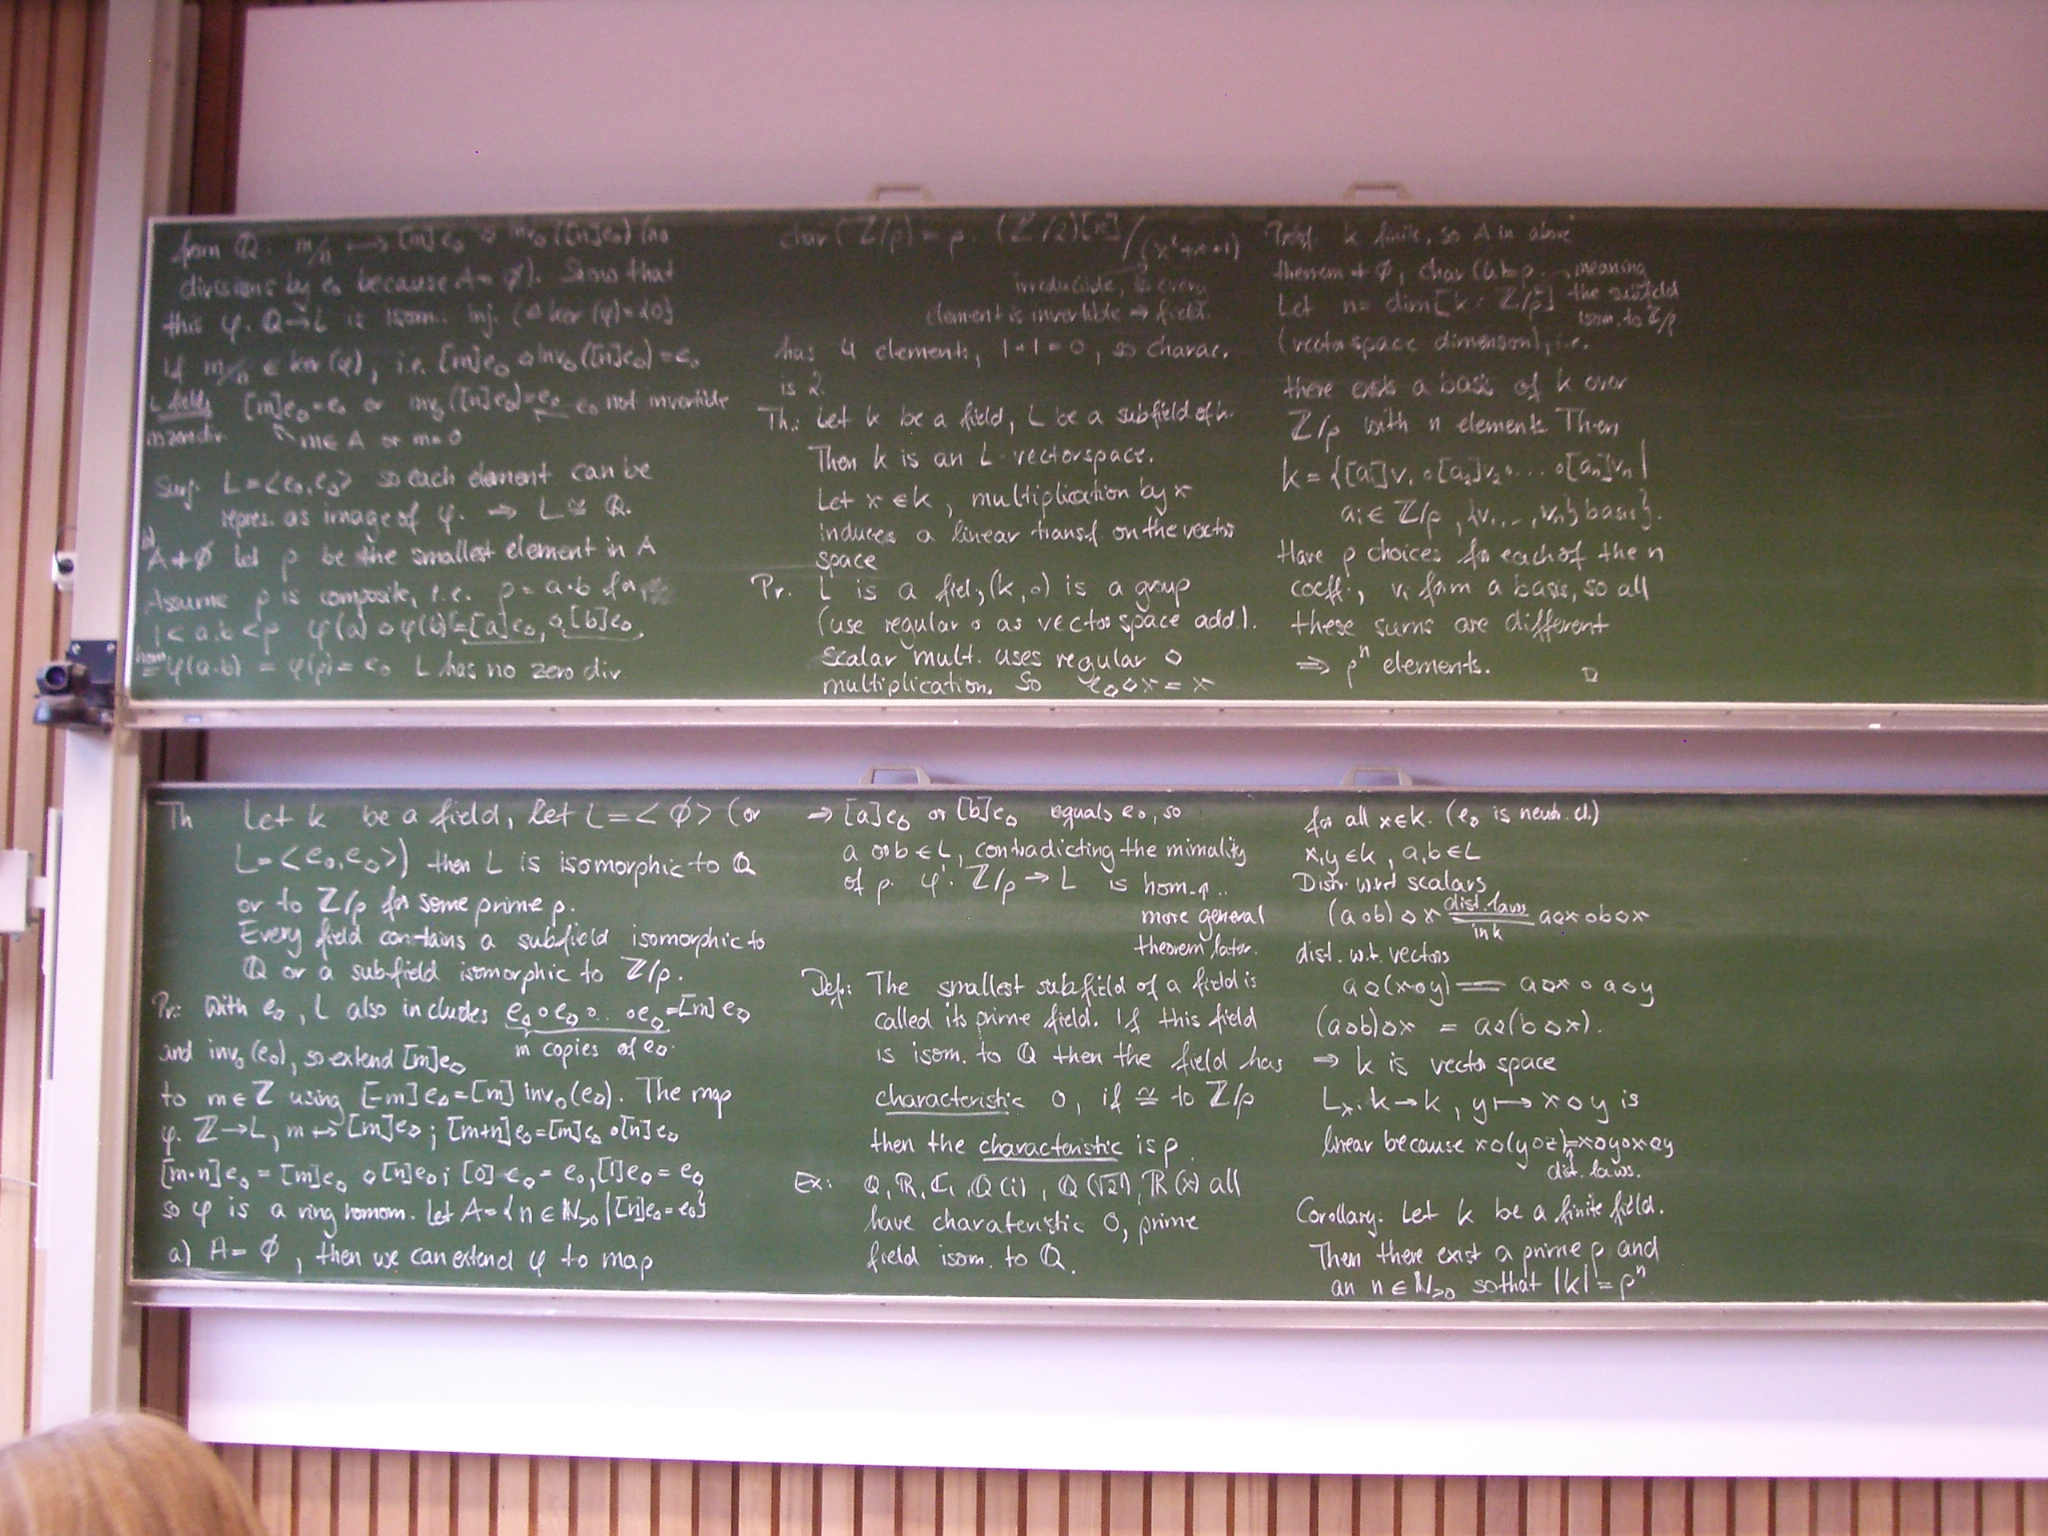 Th Let k be a field, Let L = <∅> (or
L = <e₀, e◇>) then L is isomorphic to ℚ
or to ℤ/p for some prime p.
Every field contains a subfield isomorphic to
ℚ or a subfield isomorphic to ℤ/p.
Pr: With e◇, L also includes e◇∘e◇∘...∘e◇ = [m]e◇
m copies of e◇
and inv∘(e◇), so extend [m]e◇
to m∈ℤ using [-m]e◇ = [m] inv∘(e◇). The map
φ: ℤ→L, m ↦ [m]e◇; [m+n]e◇ = [m]e◇∘[n]e◇
[m·n]e◇ = [m]e◇ ◇[n]e◇; [0]e◇ = e∘, [1]e◇ = e◇
so φ is a ring homom. Let A = {n ∈ ℕ>0 | [n]e◇ = e∘}
a) A = ∅, then we can extend φ to map
from ℚ: m/n ⟼ [m]e◇ ◇ inv◇([n]e◇) (no
divisions by e∘ because A = ∅). Show that
this φ: ℚ→L is isom. inj. (⇔ ker(φ) = {0}
if m/n ∈ ker(φ), i.e. [m]e◇ ◇ inv◇([n]e◇) = e∘
L field, [m]e◇ = e∘ or inv◇([n]e◇) = e∘ e∘ not invertible
no zero div. m∈A or m=0
Surj. L = <e∘, e◇> so each element can be
repres. as image of φ. ⇒ L ≅ ℚ.
b) A ≠ ∅ Let p be the smallest element in A
Assume p is composite, i.e. p = a·b for
1 < a,b < p φ(a)◇φ(b) = [a]e◇ ◇ [b]e◇
= φ(a·b) = φ(p) = e∘ L has no zero div
⇒ [a]e◇ or [b]e◇ equals e∘, so
a or b ∈ L, contradicting the mimality
of p. φ': ℤ/p → L is hom.
more general
theorem later.
Def: The smallest subfield of a field is
called its prime field. If this field
is isom. to ℚ then the field has
characteristic 0, if ≅ to ℤ/p
then the characteristic is p
Ex: ℚ, ℝ, ℂ, ℚ(i), ℚ(√2), ℝ(x) all
have charateristic 0, prime
field isom. to ℚ.
char(ℤ/p) = p. (ℤ/2)[x]/(x²+x+1)
irreducible, so every
element is invertible ⇒ field.
has 4 elements, 1+1=0, so charac.
is 2.
Th: Let k be a field, L be a subfield of k.
Then k is an L-vectorspace.
Let x ∈ k, multiplication by x
induces a linear transf on the vector
space
Pr. L is a field, (k,∘) is a group
(use regular ∘ as vector space add.).
scalar mult. uses regular ◇
multiplication. So e◇◇x = x
for all x∈k. (e◇ is neutr. el.)
x,y ∈k, a,b ∈L
Distr. w.r.t scalars
(a∘b)◇x = a◇x∘b◇x
dist. laws
in k
dist. w.t. vectors
a◇(x∘y) = a◇x∘a◇y
(a◇b)◇x = a◇(b◇x).
⇒ k is vector space
Lₓ: k→k, y ⟼ x◇y is
linear because x◇(y∘z) = x◇y∘x◇y
dist. laws.
Corollary: Let k be a finite field.
Then there exist a prime p and
an n ∈ ℕ>0 so that |k| = pⁿ
Proof. k finite, so A in above
theorem ≠ ∅, char(k)=p. meaning
Let n = dim[k : ℤ/p] the subfield
isom. to ℤ/p
(vectorspace dimension), i.e.
there exists a basis of k over
ℤ/p with n elements. Then
k = {[a₁]v₁∘[a₂]v₂∘...∘[aₙ]vₙ |
aᵢ ∈ ℤ/p, {v₁,..,vₙ} basis}.
Have p choices for each of the n
coeff., vᵢ form a basis, so all
these sums are different
⇒ pⁿ elements. □